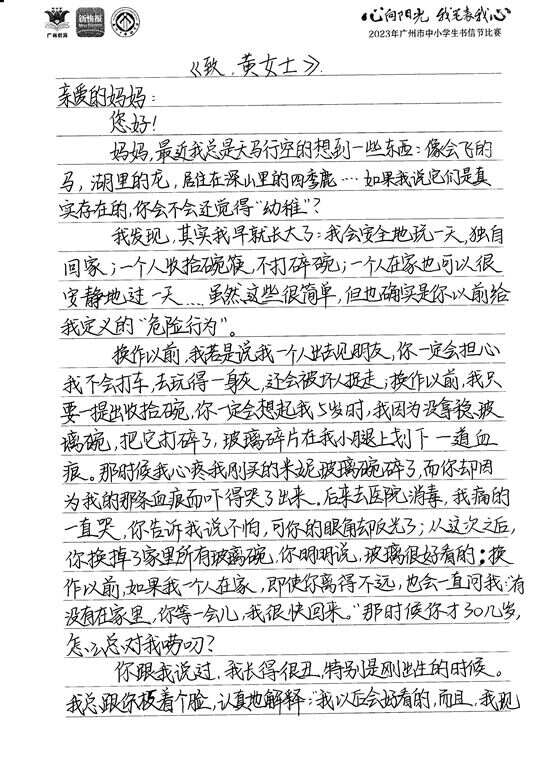 广州教育
新快报
心向阳光 我笔表我心
2023年广州市中小学生书信节比赛
《致，黄女士》
亲爱的妈妈：
您好！
妈妈，最近我总是天马行空的想到一些东西：像会飞的
马，湖里的龙，居住在深山里的四季鹿……如果我说它们是真
实存在的，你会不会还觉得“幼稚”？
我发现，其实我早就长大了：我会安全地玩一天，独自
回家；一个人收拾碗筷，不打碎碗；一个人在家也可以很
安静地过一天……虽然这些很简单，但也确实是你以前给
我定义的“危险行为”。
换作以前，我若是说我一个人出去见朋友，你一定会担心
我不会打车，去玩得一身灰，还会被坏人捉走；换作以前，我只
要一提出收拾碗，你一定会想起我5岁时，我因为没拿稳玻
璃碗，把它打碎了，玻璃碎片在我小腿上划下一道血
痕。那时候我心疼我刚买的米妮玻璃碗碎了，而你却因
为我的那条血痕而吓得哭了出来。后来去医院消毒，我痛的
一直哭，你告诉我说不怕，可你的眼角却反光了；从这次之后，
你换掉了家里所有玻璃碗，你明明说，玻璃很好看的；换
作以前，如果我一个人在家，即使你离得不远，也会一直问我：“有
没有在家里，你等一会儿，我很快回来。”那时候你才30几岁，
怎么总对我唠叨？
你跟我说过，我长得很丑，特别是刚出生的时候。
我总跟你板着个脸，认真地解释：“我以后会好看的，而且，我现